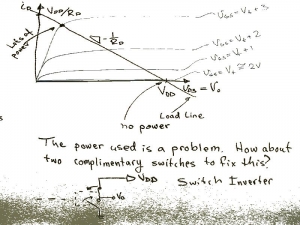 iD
VDD/RD
VGS = Vt + 3
Lots of
power
-1/RD
VGS = Vt + 2
VGS = Vt + 1
VGS = Vt ≅ 2V
VDD
VDS = Vo
Load Line
no power
The power used is a problem. How about
two complimentary switches to fix this?
VDD
Switch Inverter
Vo